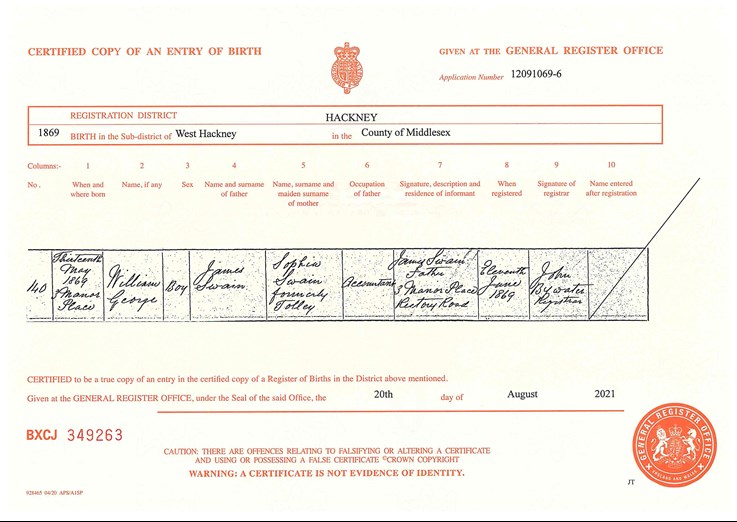 CERTIFIED COPY OF AN ENTRY OF BIRTH
GIVEN AT THE GENERAL REGISTER OFFICE
Application Number 12091069-6
REGISTRATION DISTRICT HACKNEY
1869 BIRTH in the Sub-district of West Hackney in the County of Middlesex
Columns:- 1 2 3 4 5 6 7 8 9 10
No. When and where born
Name, if any
Sex
Name and surname of father
Name, surname and maiden surname of mother
Occupation of father
Signature, description and residence of informant
When registered
Signature of registrar
Name entered after registration
140
Thirteenth
May
1869
3 Manor
Place
William
George
Boy
James
Swain
Sophia
Swain
formerly
Tolley
Accountant
James Swain
Father
3 Manor Place
Rectory Road
Eleventh
June
1869
John
Bywater
Registrar
CERTIFIED to be a true copy of an entry in the certified copy of a Register of Births in the District above mentioned.
Given at the GENERAL REGISTER OFFICE, under the Seal of the said Office, the 20th day of August 2021
BXCJ 349263
CAUTION: THERE ARE OFFENCES RELATING TO FALSIFYING OR ALTERING A CERTIFICATE
AND USING OR POSSESSING A FALSE CERTIFICATE ©CROWN COPYRIGHT
WARNING: A CERTIFICATE IS NOT EVIDENCE OF IDENTITY.
GENERAL REGISTER OFFICE
ENGLAND AND WALES
JT
928465 04/20 APS/A1SP